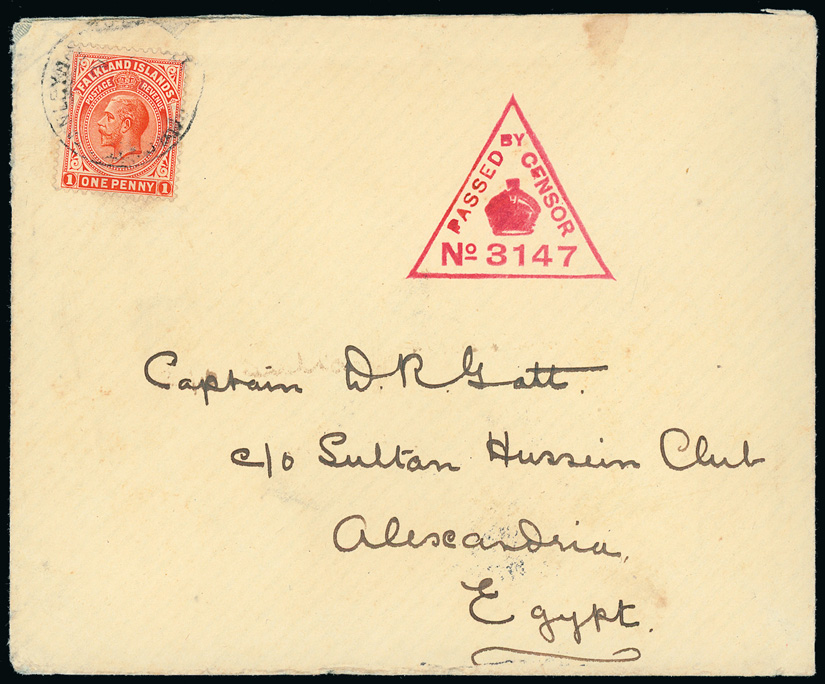 FALKLAND ISLANDS
POSTAGE REVENUE
1 ONE PENNY 1
PASSED BY CENSOR
Nº 3147
Captain D. R. Gatt.
c/o Sultan Hussein Club
Alexandria,
Egypt.